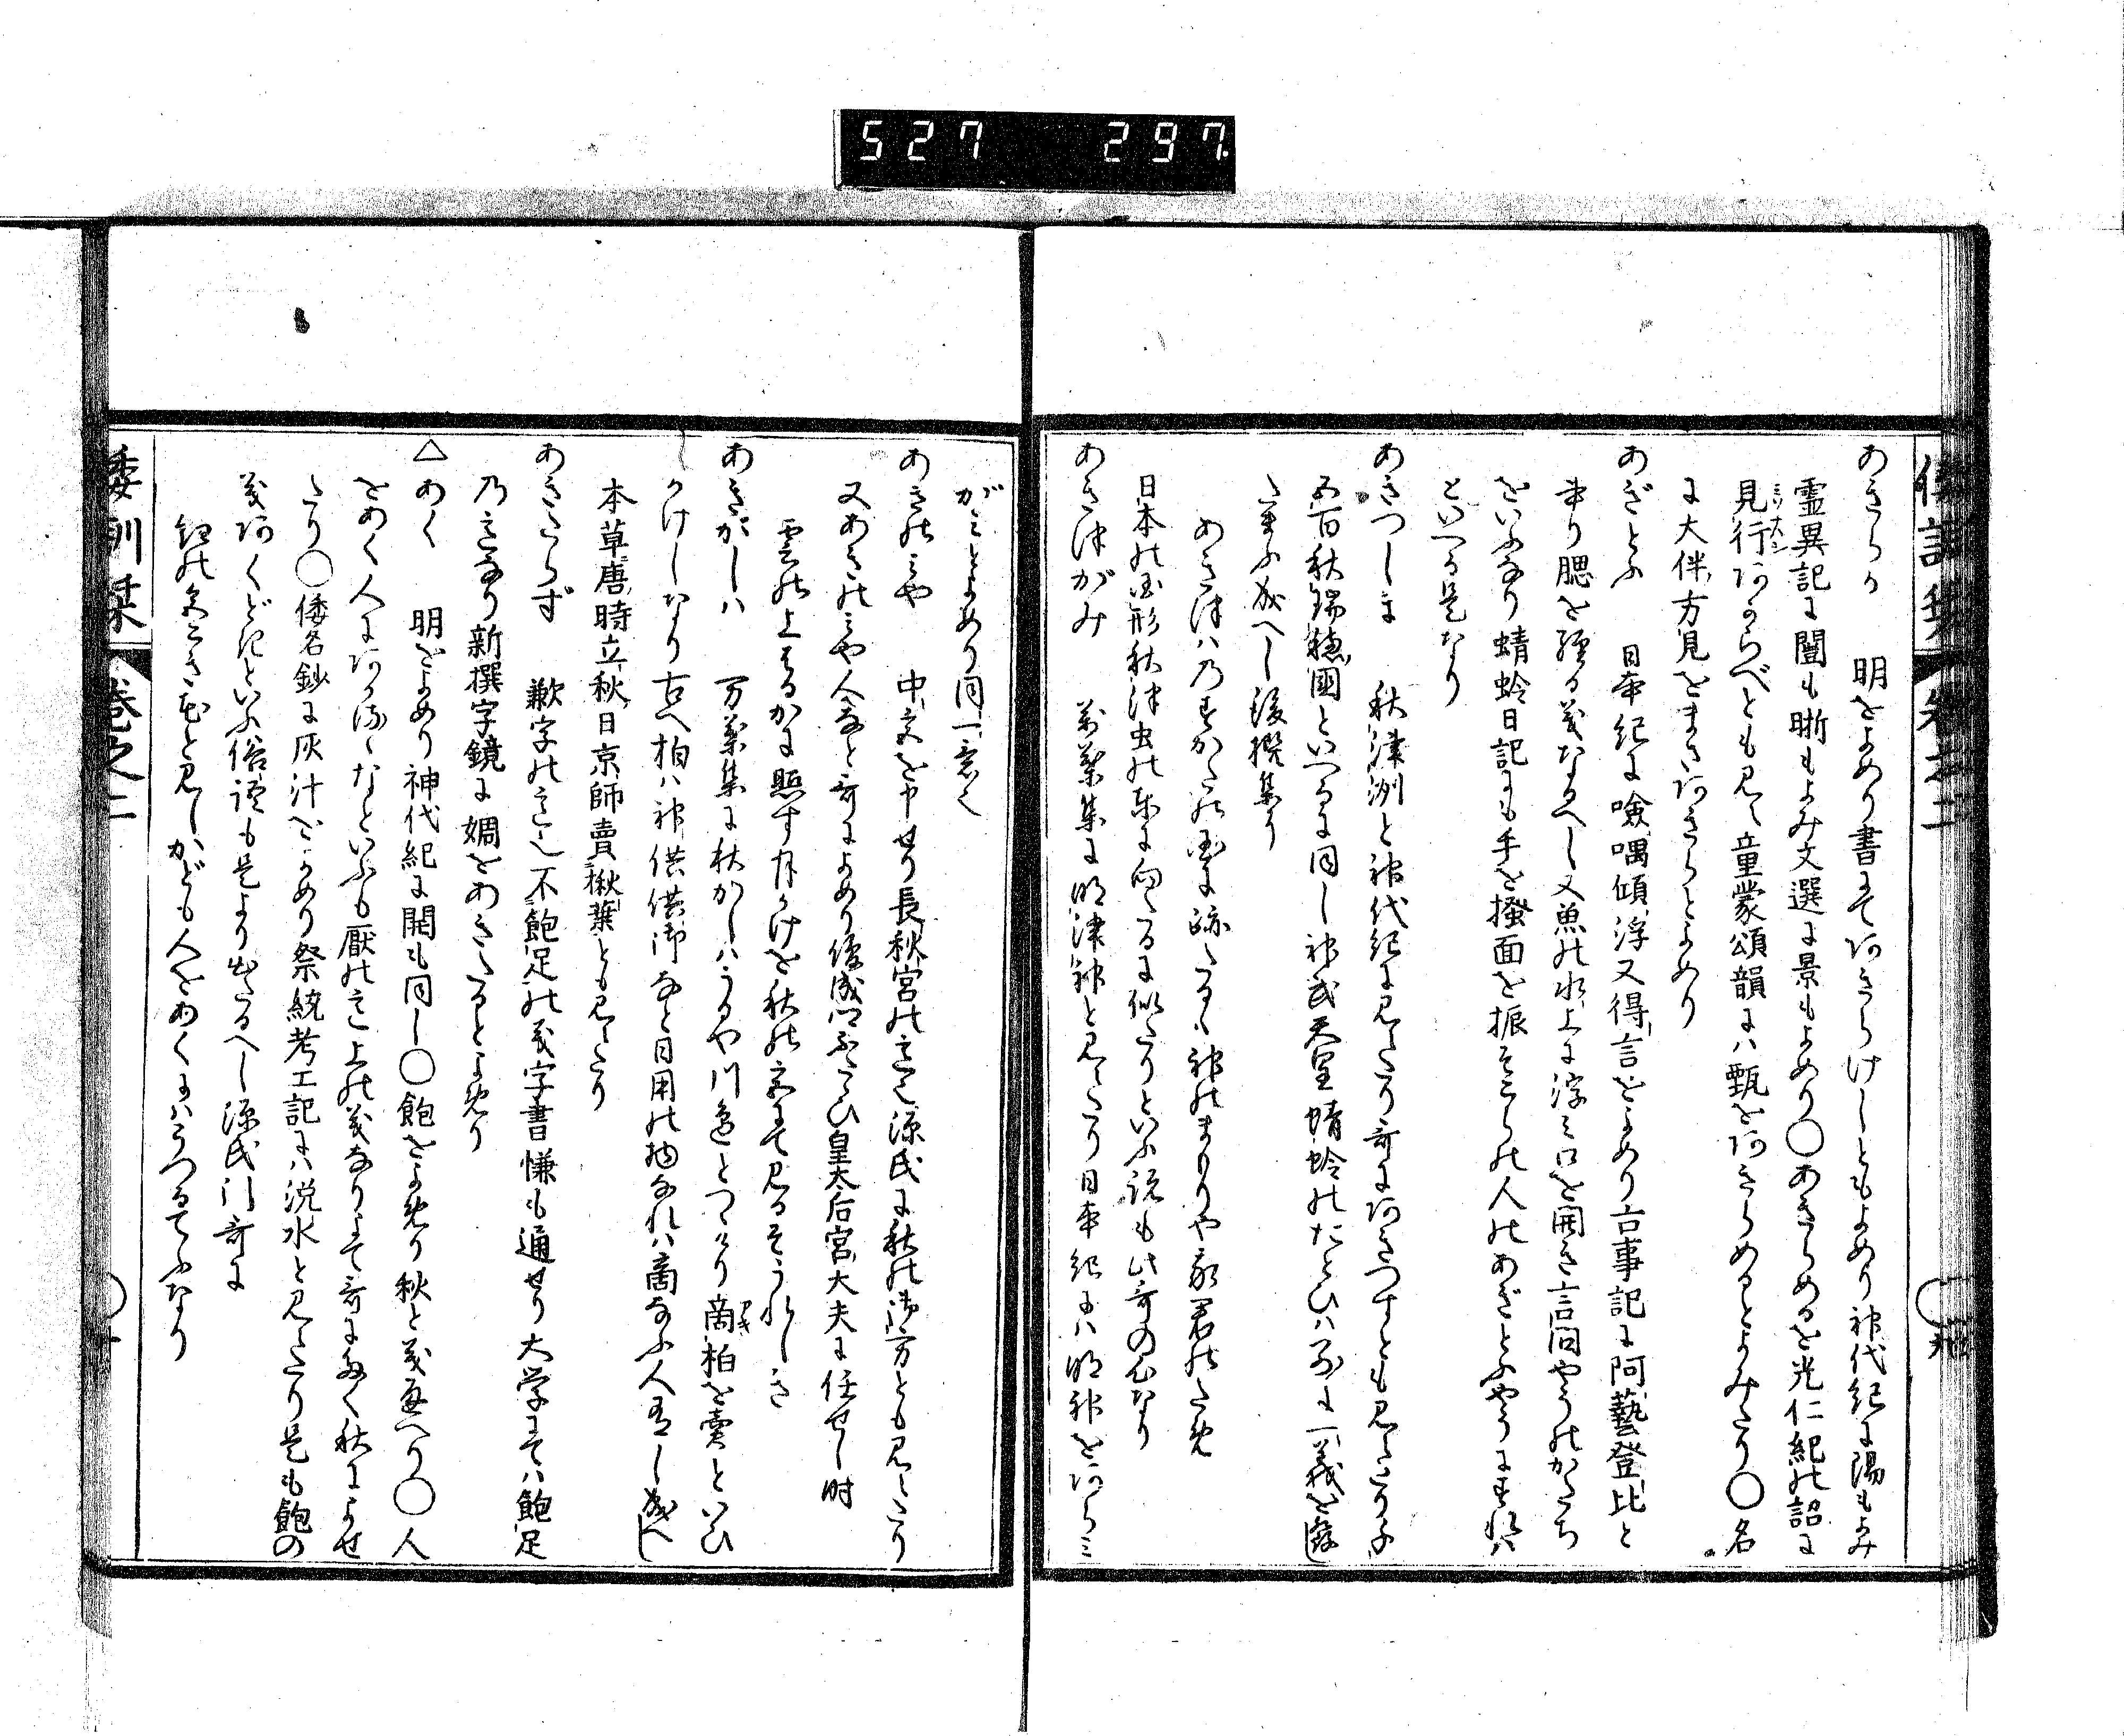 527 297.
倭訓栞 卷之二
あきらか 明をよめり書にてあきらけしともよめり神代紀に陽もよみ
霊異記に闓も晣もよみ文選に景もよめり〇あきらめるを光仁紀の詔に
見行あからべとも見ゆ童蒙頌韻には甄をあきらめるとよみたり〇名
に大伴方見をまさあきらとよめり
あぎとふ 日本紀に噞喁傾浮又得言をよめり古事記に阿藝登比と
あり腮を経る義なるへし又魚の水上に浮み口を開き言問やうのかたち
をいふなり蜻蛉日記にも手を掻面を振そこらの人のあぎとふやうにすれは
といへる是なり
あきつしま 秋津洲と神代紀に見えたり哥にあきつすとも見えたり
五百秋瑞穂國といへるに同し神武天皇蜻蛉のたとひは別に一義を發し
たまふ成へし後撰集に
あきつはのすかたの国に跡たるゝ神のまもりや我君のため
日本の国形秋津虫の東に向へるに似たりといふ説も此哥の心なり
あきつがみ 萬葉集に明津神と見えたり日本紀には明神をあらみ
がみとよめり同一意也
あきのみや 中宮を申せり長秋宮の意也源氏に秋の御方とも見えたり
又あきのみや人なと哥によめり俊成卿ふたゝひ皇太后宮大夫に任せし時
雲の上はるかに照す月かけを秋の宮にて見るそうれしき
あきがしハ 万葉集に秋かしハうるや川邉とつゝけり商柏を賣といひ
かけしなり古へ柏ハ神供供御なと日用の物なれハ商なふ人有し成へし
本草唐時立秋日京師賣楸葉とも見えたり
あきたらず 歉字の意也不飽足の義字書慊も通せり大学にてハ飽足
乃意なり新撰字鏡に婤をあきたるとよめり
△あく 明をよめり神代紀に開も同し〇飽をよめり秋と義通へり〇人
をあく人にあかるゝなといふも厭の意上の義なりよて哥に多く秋によせ
たり〇倭名鈔に灰汁をよめり祭統考工記にハ涗水と見えたり是も飽の
義あくどきといふ俗語も是より出たるへし源氏の哥に
紅の色こき花と見しかども人をあくにハうつるてふなり
倭訓栞 卷之二 〇十